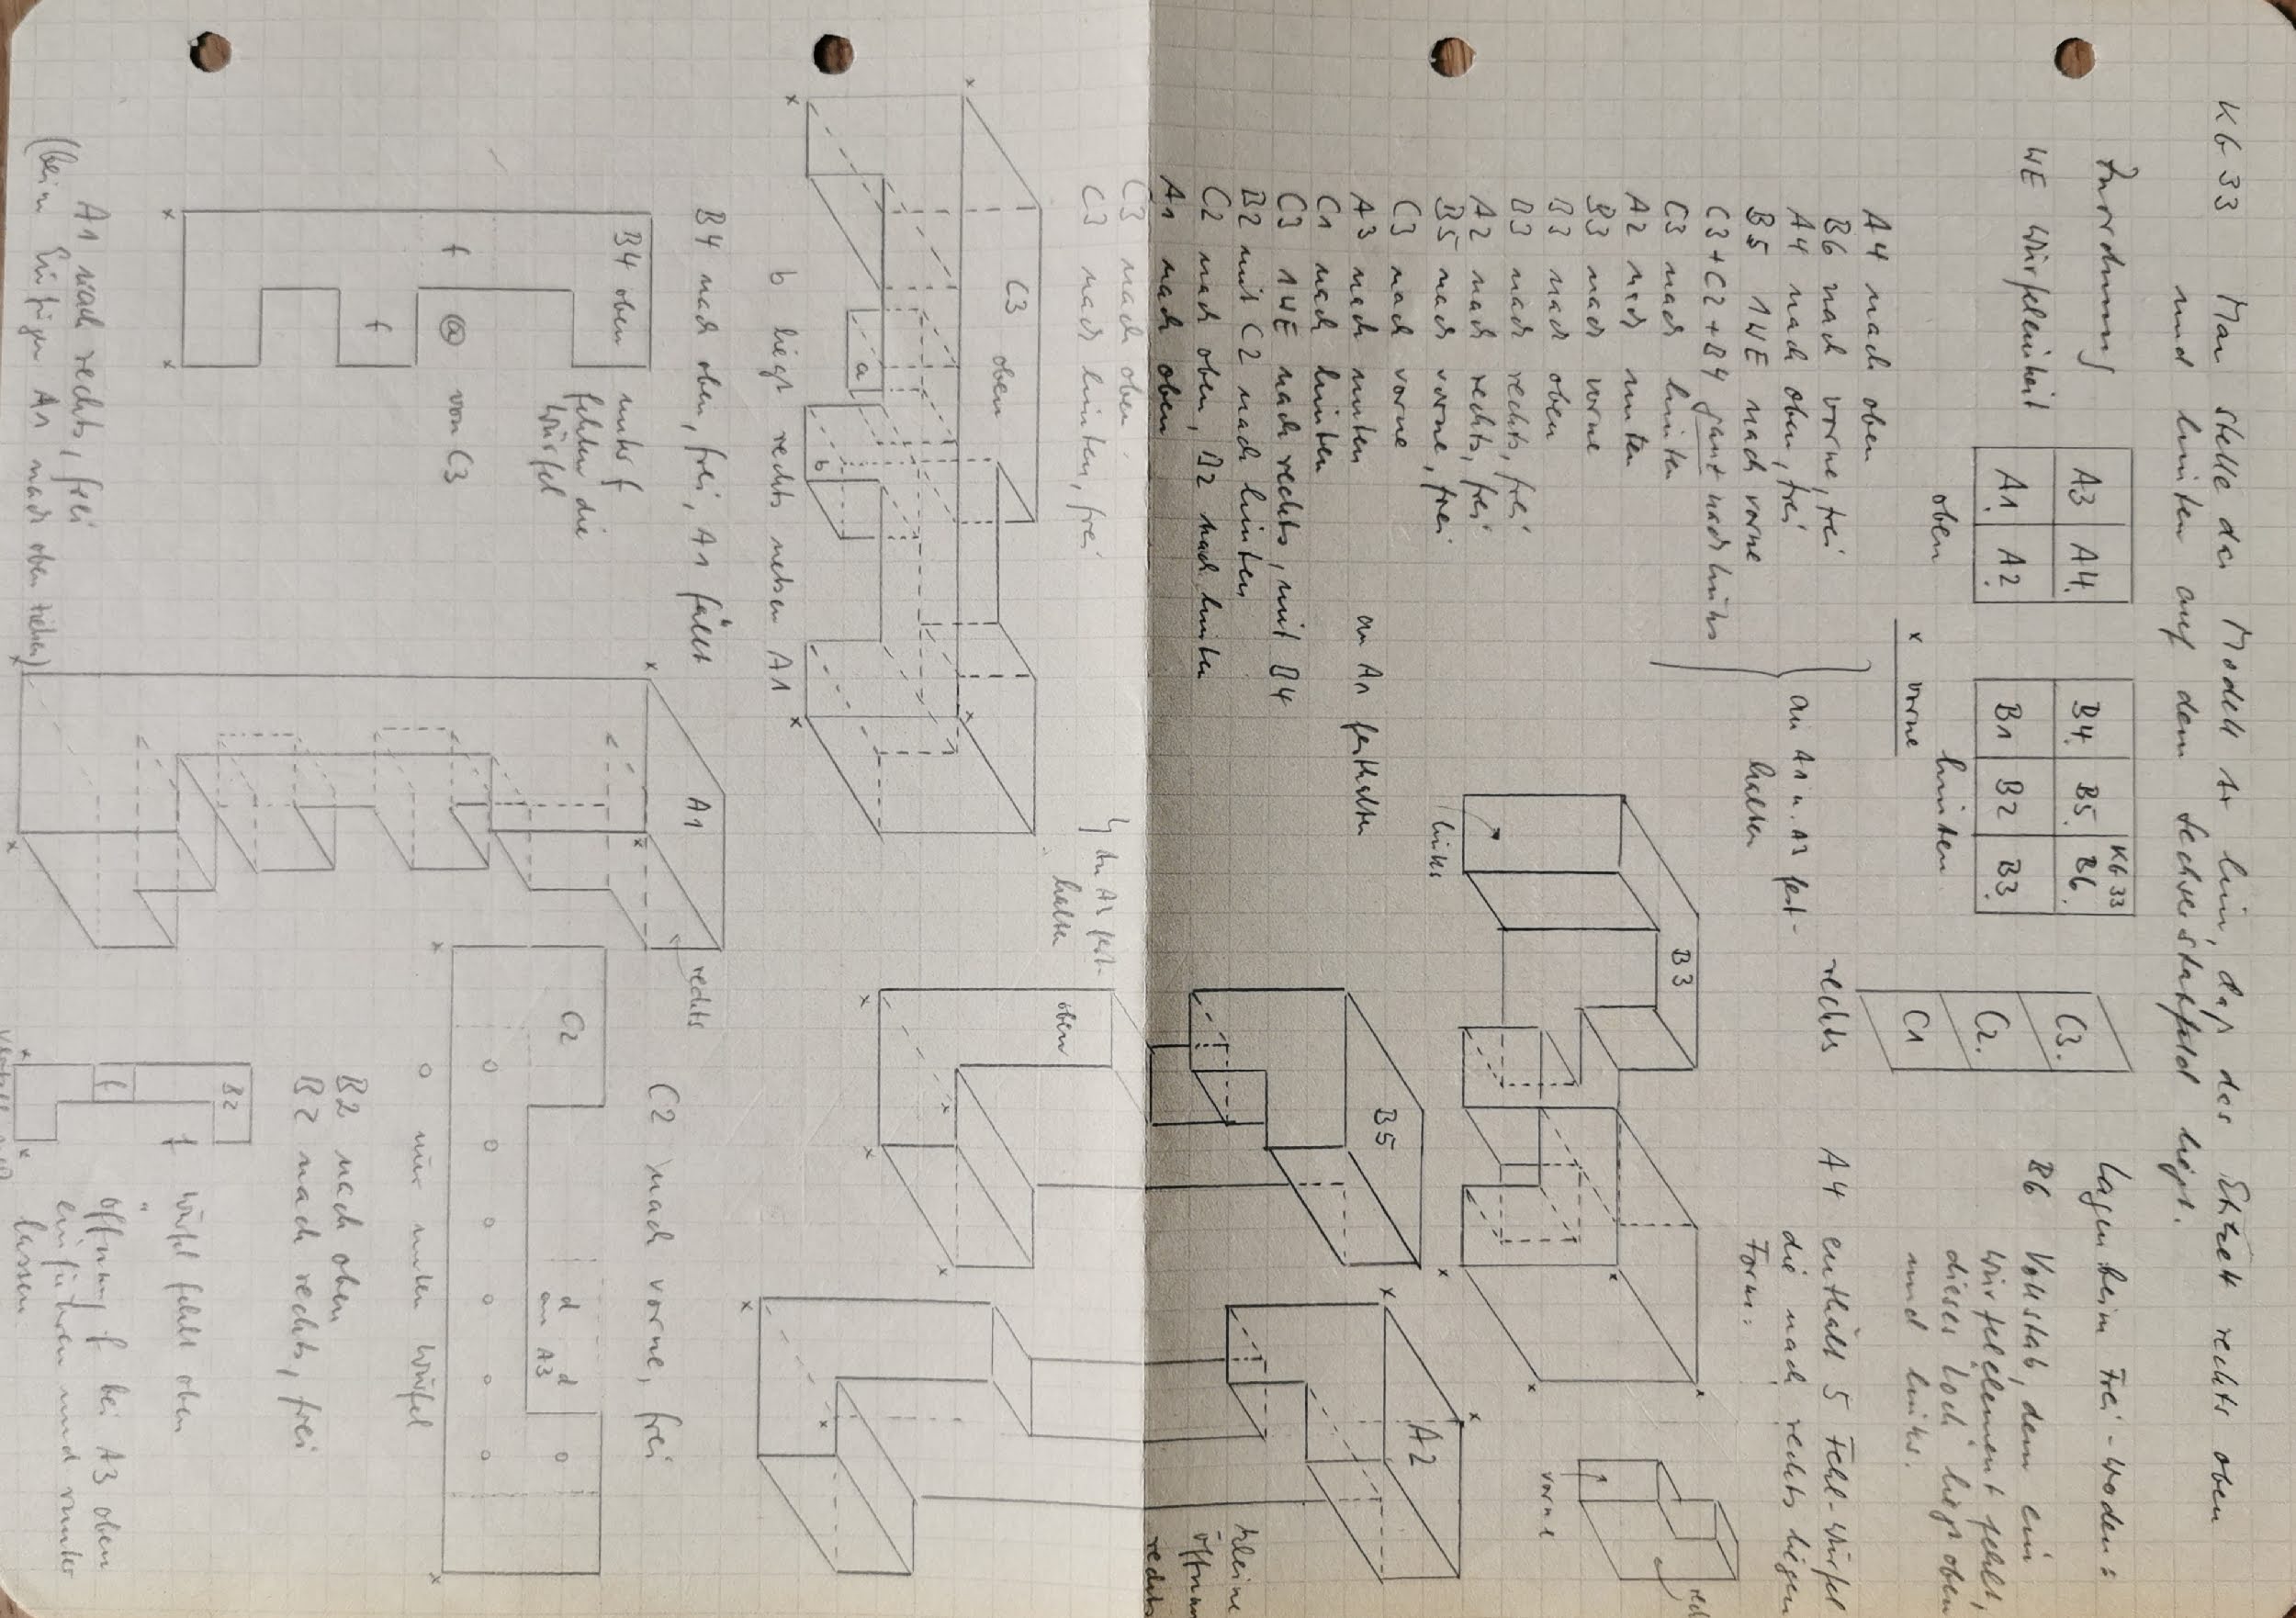 K6 33 Man stelle das Modell so hin, daß das Etikett rechts oben
und hinten auf dem Sechserstapfeld liegt.
Zuordnung
WE Würfeleinheit
A3 A4.
A1. A2.
oben
B4. B5. K6 33 B6.
B1 B2 B3.
hinten
x vorne
C3.
C2.
C1
rechts
Lagen beim Frei-werden:
B6 Vollstab, dem ein
Würfelelement fehlt,
dieses Loch liegt oben
und links.
A4 enthält 5 Fehl-Würfel
die nach rechts liegen
Form:
vorne
A4 nach oben
B6 nach vorne, frei
A4 nach oben, frei
B5 1WE nach vorne
C3+C2+B4 ganz nach links
C3 nach hinten
A2 nach unten
B3 nach vorne
B3 nach oben
B3 nach rechts, frei
A2 nach rechts, frei
B5 nach vorne, frei
C3 nach vorne
A3 nach unten
C1 nach hinten
C3 1WE nach rechts, mit B4
B2 mit C2 nach hinten
C2 nach oben, B2 nach hinten
A1 nach oben
C3 nach oben
C3 nach hinten, frei
an A1 u. A3 fest-
halten
an A1 festhalten
an A1 fest-
halten
B3
links
B5
oben
A2
kleine
Öffnung
rechts
C3 oben
a
b
b liegt rechts neben A1
B4 nach oben, frei, A1 fällt
B4 oben
unter f
fehlen die
Würfel
f
f
@ von C3
A1 nach rechts, frei
(beim Einfügen A1 nach oben ziehen)
A1
rechts
C2 nach vorne, frei
C2
d d
am A3
o nur unten Würfel
B2 nach oben
B2 nach rechts, frei
B2
f
f Würfel fehlt oben
Öffnung f bei A3 oben
einführen und runter
lassen